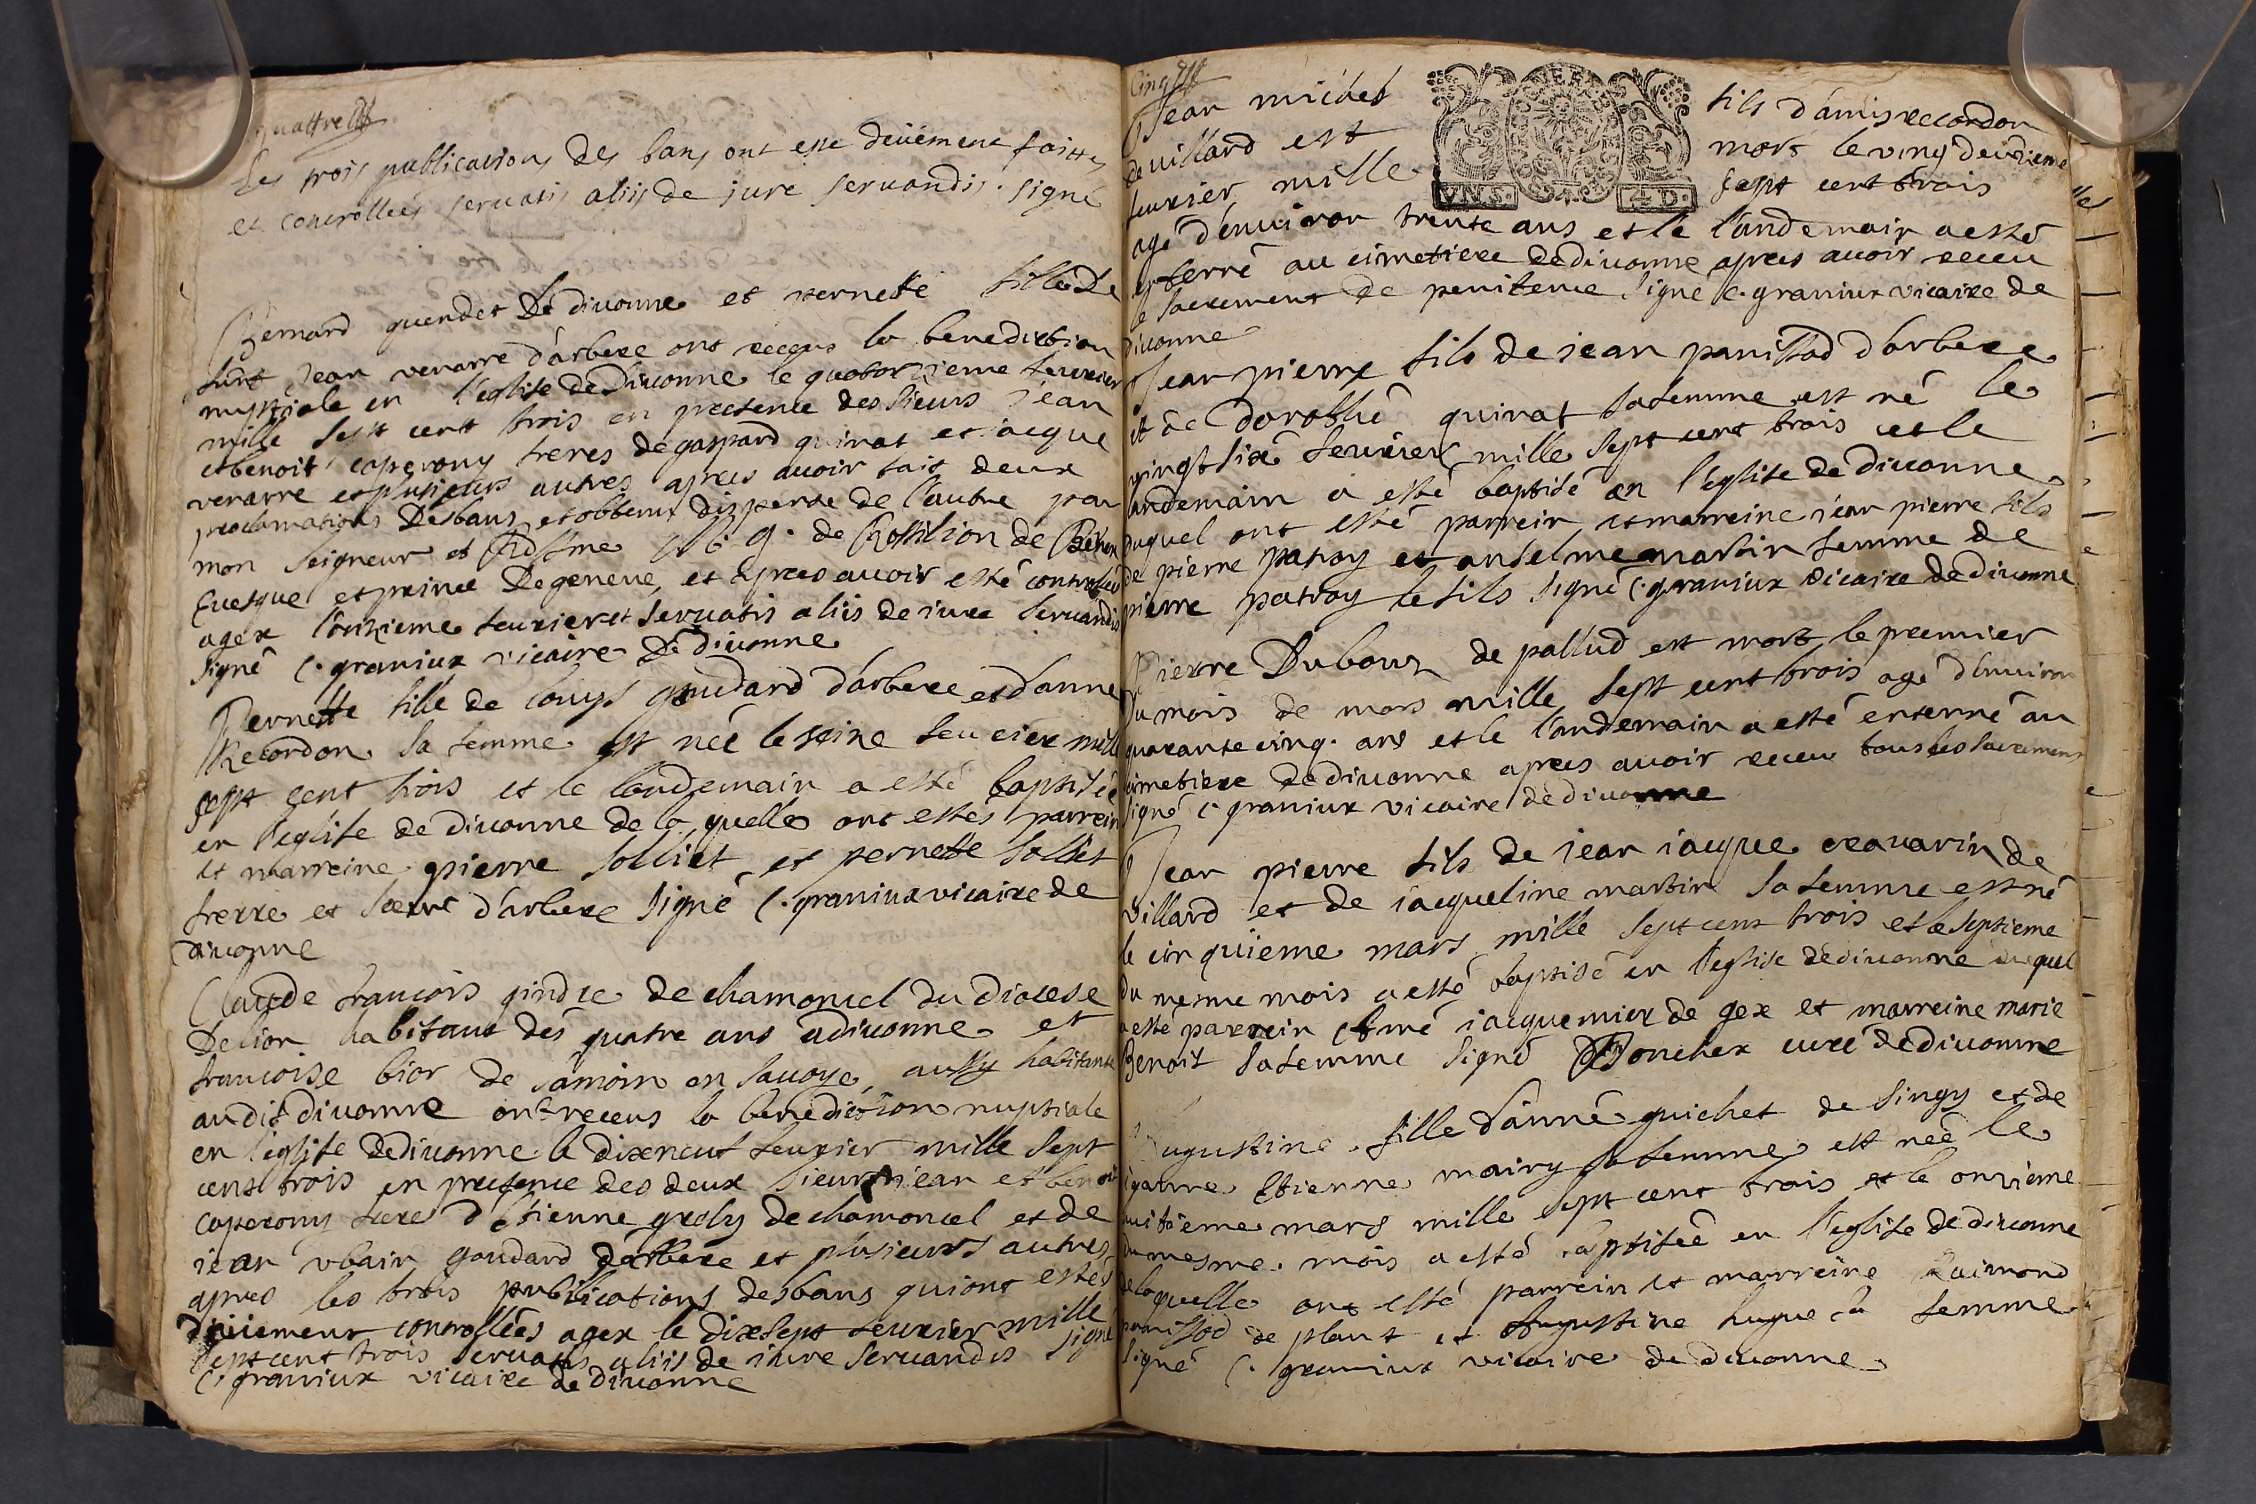 quattre
les trois publications des bans ont esté deüement faittes
et controllees servatis aliis de jure servandis. signé
Bernard guendet de divonne et pernette fille de
fust Jean verarre d'arbere ont receus la benediction
nuptiale en l'eglise de Divonne le quatorzieme feuvrier
mille sept cent trois en presence des sieurs jean
et benoit caperony freres de gaspard quinat et jacque
verarre et plusieurs autres apres avoir fait deux
proclamations des bans et obtenu dispense de l'autre par
mon seigneur et de Rossilion de
Evesque et prince de geneve, et apres avoir esté controlleés
a gex l'onzieme feuvrier et servatis aliis de jure servandis
signé C. graniux vicaire de divonne
Pernette fille de louys goudard d'arbere et d'anne
Recordon sa femme est neé le seize feuvrier mille
sept cent trois et le landemain a esté baptiseé
en l'eglise de divonne de la quelle ont estés parrein
et marreine pierre solliet et pernette solliet
frerre et soeur d'arbere signé C. graniux vicaire de
divonne
Claude francois gindre de chamoncel du diocese
de lion habitant dés quatre ans a divonne et
francoise bior de samoin en savoye, aussy habitante
au dit divonne ont receus la benediction nuptiale
en l'eglise de divonne le dixneuf feuvrier mille sept
cent trois en presence des deux sieurs jean et benoit
caperony frere d'Etienne groly de chamoncel et de
jean ubain goudard d'arbere et plusieurs autres
apres les trois publications des bans qui ont estés
deüement controllées a gex le dixsept feuvrier mille
sept cent trois servatis aliis de jure servandis signé
C. graniux vicaire de divonne
Cinq
Jean michel fils d'amis recordon
de villard est mort le vingt deuxieme
feuvrier mille sept cent trois
VN S. 4 D.
agé d'environ trente ans et le landemain a esté
enterré au cimetiere de divonne apres avoir receu
le sacrement de penitence signé C. graniux vicaire de
divonne
Jean pierre fils de jean panissod d'arbere
et de dorothé quinat sa femme est né le
vingt sixé feuvrier mille sept cent trois et le
landemain a esté baptisé en l'eglise de divonne
duquel ont esté parrein et marreine jean pierre fils
de pierre patroy et anselme martin femme de
pierre patroy le fils signé C. graniux vicaire de divonne
Pierre Dubout de pallud est mort le premier
du mois de mars mille sept cent trois agé d'environ
quarante cinq ans et le landemain a esté enterré au
cimetiere de divonne apres avoir receu tous les sacrements
signé C. graniux vicaire de divonne
Jean pierre fils de jean jacque cravarin de
villard et de jacqueline martin sa femme est né
le cinquieme mars mille sept cent trois et le septieme
du mesme mois a esté baptisé en l'eglise de divonne duquel
a esté parrein Aimé jacquemier de gex et marreine marie
Benoit sa femme signé Poncher curé de divonne
Augustine fille d'aimé guichet de singy et de
Etienne mairy sa femme est neé le
huitieme mars mille sept cent trois et le onzieme
du mesme mois a esté baptiseé en l'eglise de divonne
de la quelle ont esté parrein et marreine Raimond
panissod de plant et Augustine hugue sa femme
signé C. graniux vicaire de divonne